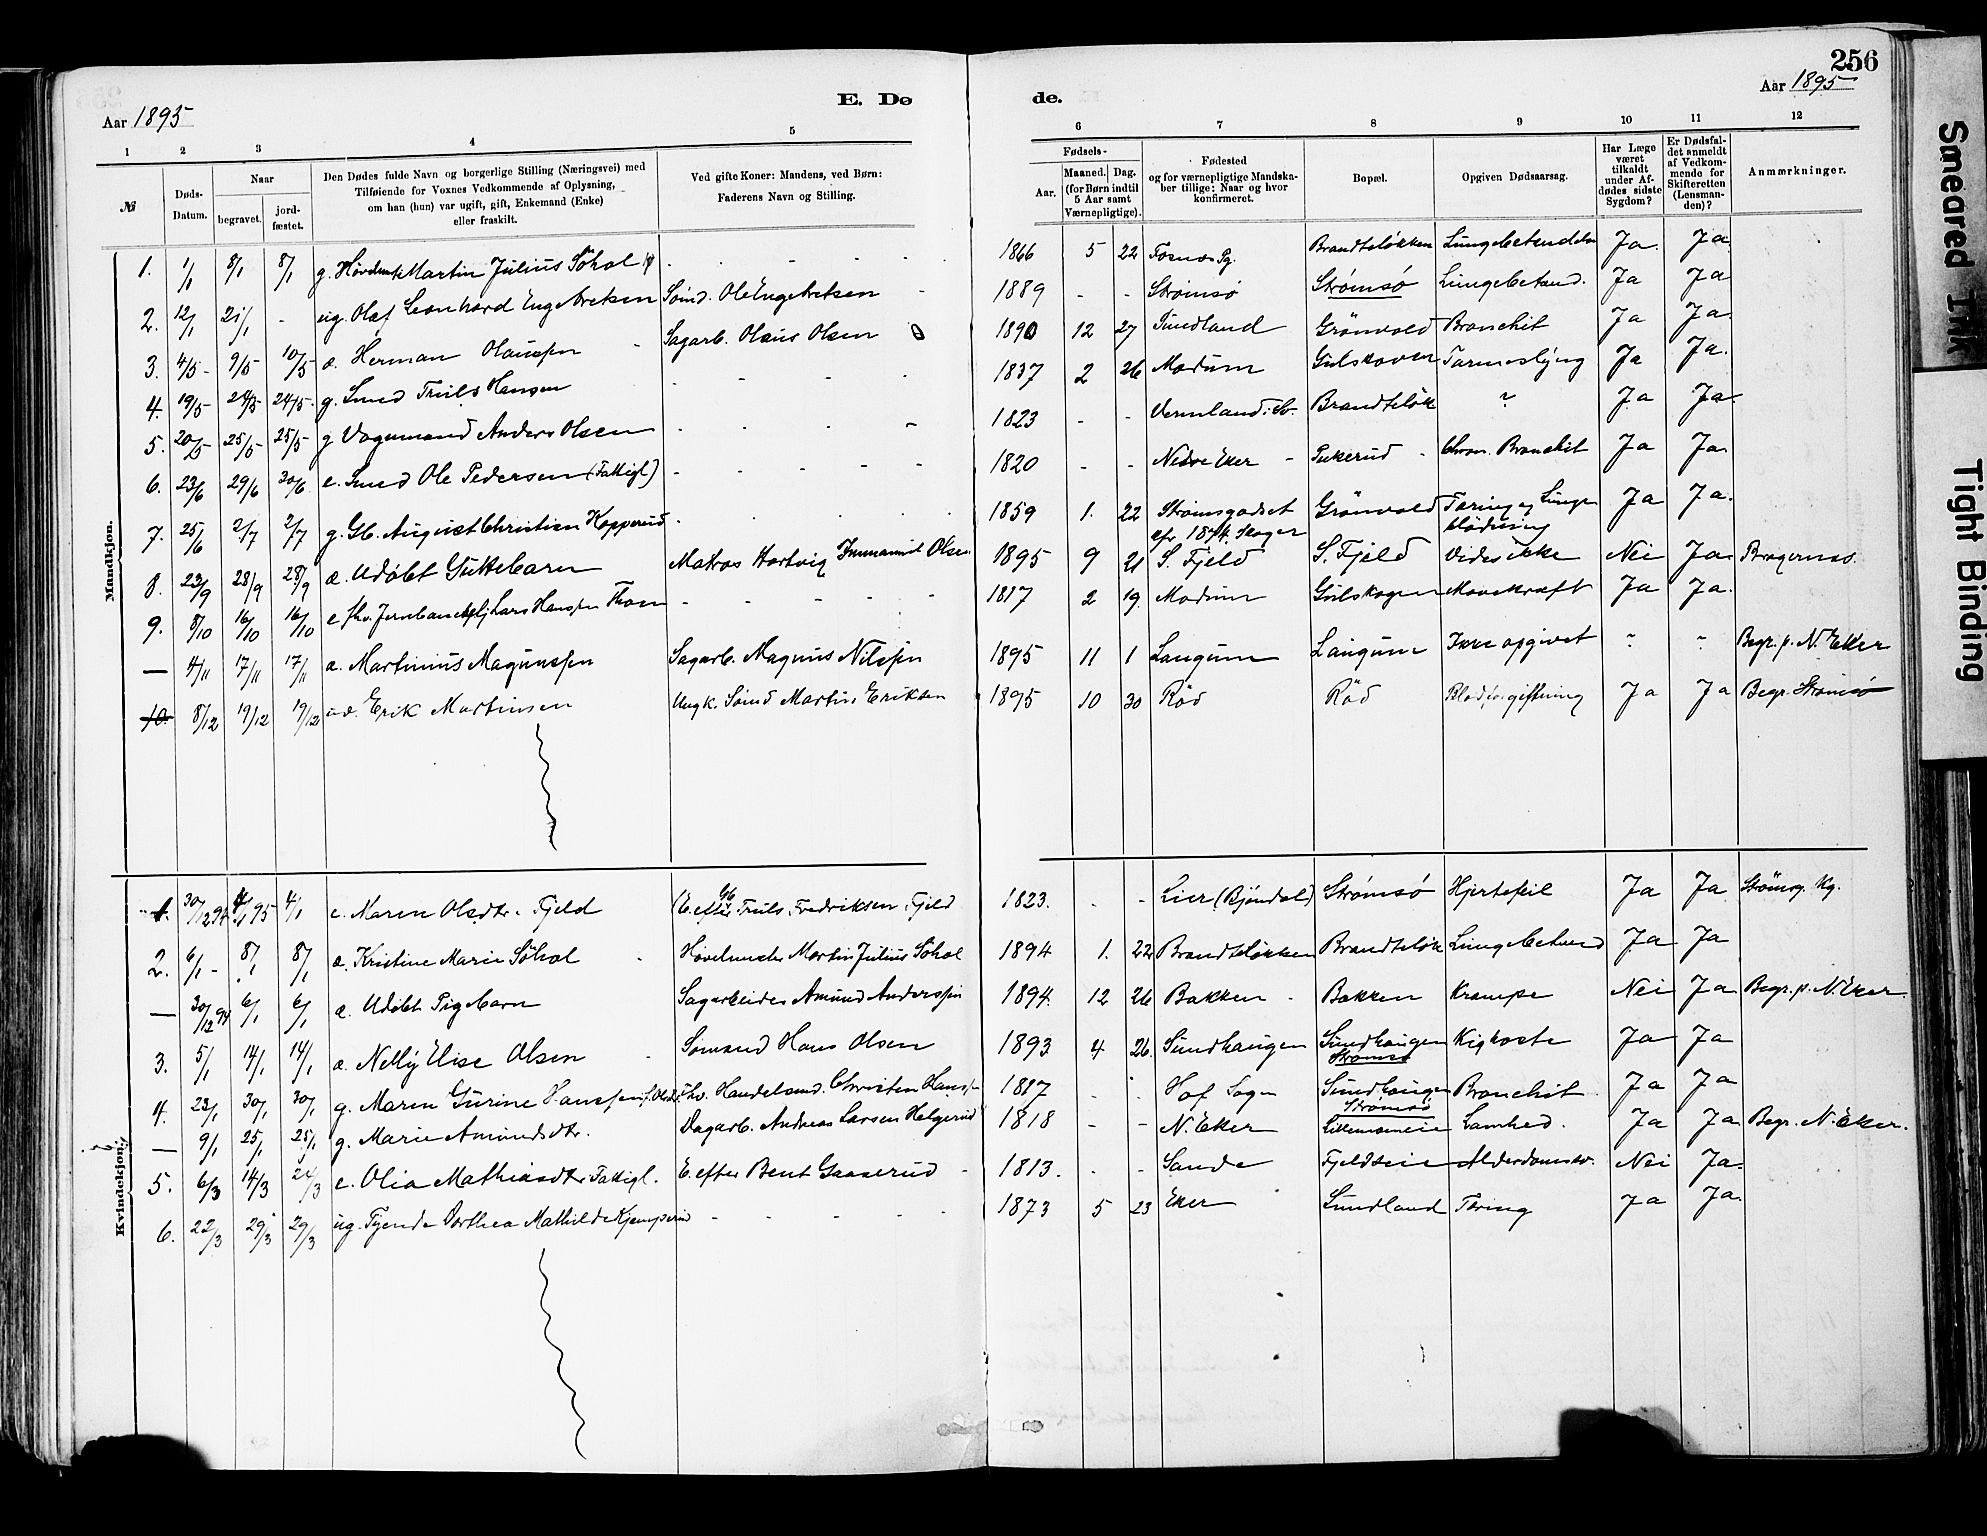 256
Aar 1895
E. Dø
de.
Aar 1895
1 2 3 4 5
6 7 8 9 10 11 12
№
Døds-Datum.
Naar
begravet.
jord-fæstet.
Den Dødes fulde Navn og borgerlige Stilling (Næringsvei) med
Tilføiende for Voxnes Vedkommende af Oplysning,
om han (hun) var ugift, gift, Enkemand (Enke)
eller fraskilt.
Ved gifte Koner: Mandens, ved Børn:
Faderens Navn og Stilling.
Fødsels-
Aar.
Maaned. Dag.
(for Børn indtil
5 Aar samt
Værnepligtige).
Fødested
og for værnepligtige Mandska-
ber tillige: Naar og hvor
konfirmeret.
Bopæl.
Opgiven Dødsaarsag.
Har Læge
været
tilkaldt
under Af-
dødes sidste
Sygdom?
Er Dødsfal-
det anmeldt
af Vedkom-
mende for
Skifteretten
(Lensman-
den)?
Anmærkninger.
Mandkjøn.
1. 1/1 8/1 8/1 g. Martin Julius Söhol - - - - 1866 5 22 Brandteløkken Ja Ja
2. 12/1 21/1 - ug. Olaf Leonhard Engebretsen Sømd. Ole Engebretsen - 1889 - - Strømsö Strømsö Lungebetænd. Ja Ja
3. 4/5 9/5 10/5 a. Herman Olaussen Sagarb. Olaus Olsen 1890 12 27 Sundland Grönvold Bronchit Ja Ja
4. 19/5 24/5 24/5 g. Smed Truls Hansen - - - - 1837 2 26 Modum Gulskoven Tarmeslyng Ja Ja.
5. 20/5 25/5 25/5 g Vognmand Anders Olsen - - - - 1823 - - Brandteløk ? Ja Ja
6. 23/6 29/6 30/6 e. Smed Ole Pedersen (Fattigl) - - - - 1820 - - Nedre Eker - Chron. Bronchit Ja Ja
7. 25/6 2/7 2/7 g. Gb. August Christian Kopperud - - - - 1859 1. 22 Strømsgodset Grönvold Tæring og Lunge Ja Ja.
Skoger blødning
8. 23/9 28/9 28/9 a. Udøbt Guttebarn Matros Hartvig Olsen 1895 9 21 S. Fjeld S. Fjeld Vides ikke Nei Ja Bragernæs.
9. 8/10 16/10 16/10 e Lars Hanssen - - - - 1817 2 19. Modum Gulskogen Ja Ja.
— 4/11 17/11 17/11 a. Martinius Magnussen Sagarb. Magnus Nilssen 1895 11 1 Langum Langum Ikke opgivet - - Begr. p. N. Eker
10. 8/12 19/12 19/12 Erik Martinsen Ungk. Sømd Martin Eriksen 1895 10 30 Röd Röd Blodforgiftning Ja Ja Begr. Strømsö
Kvindekjøn.
1. 30/12 94 4/1 95 4/1 e. Maren Olsdtr. Fjeld (E. efter Gb. Truls Fredriksen Fjeld 1823. - - Lier (Bjöndal) Strømsö Hjertefeil Ja Ja Strömsg. Kg.
2. 6/1 - 8/1 8/1 a. Kristine Marie Söhol Martin Julius Söhol 1894 1. 22 Brandteløkken Brandteløk Lungebetænd Ja Ja
— 30/12 94 6/1 6/1 a. Udöbt Pigebarn Sagarbeider Amund Anderssen 1894. 12 26 Bakken - Bakken Krampe Nei Ja Begr. p. N. Eker.
3. 5/1 14/1 14/1 a. Nelly Elise Olsen Sømand Hans Olsen 1893 4 26. Sundhaugen Sundhaugen Kighoste Ja Ja
Strømsö
4. 23/1 30/1 30/1 g. Maren Gurine Hanssen Fhv. Handelsmd. Christen Hanss 1817 - - Hof Sogn Sundhaugen Bronchit Ja Ja
Strømsö
— 9/1 25/1 25/1 g. Marie Amundsdtr. Dagarb. Andreas Larsen Helgerud 1818 - - N. Eker Lamhed. Ja Ja Begr. N. Eker.
5. 6/3 14/3 24/3 e. Olia Mathiasdtr Fattigl. E. efter Bent Gaaserud - 1813. - - Sande Alderdomssv. Nei Ja.
6. 22/3 29/3 29/3 ug. Tjende Dorthea Mathilde Kjemperud - - - - 1873 5 23 Eker Sundland Tæring Ja Ja.
Smeared Ink
Tight Binding